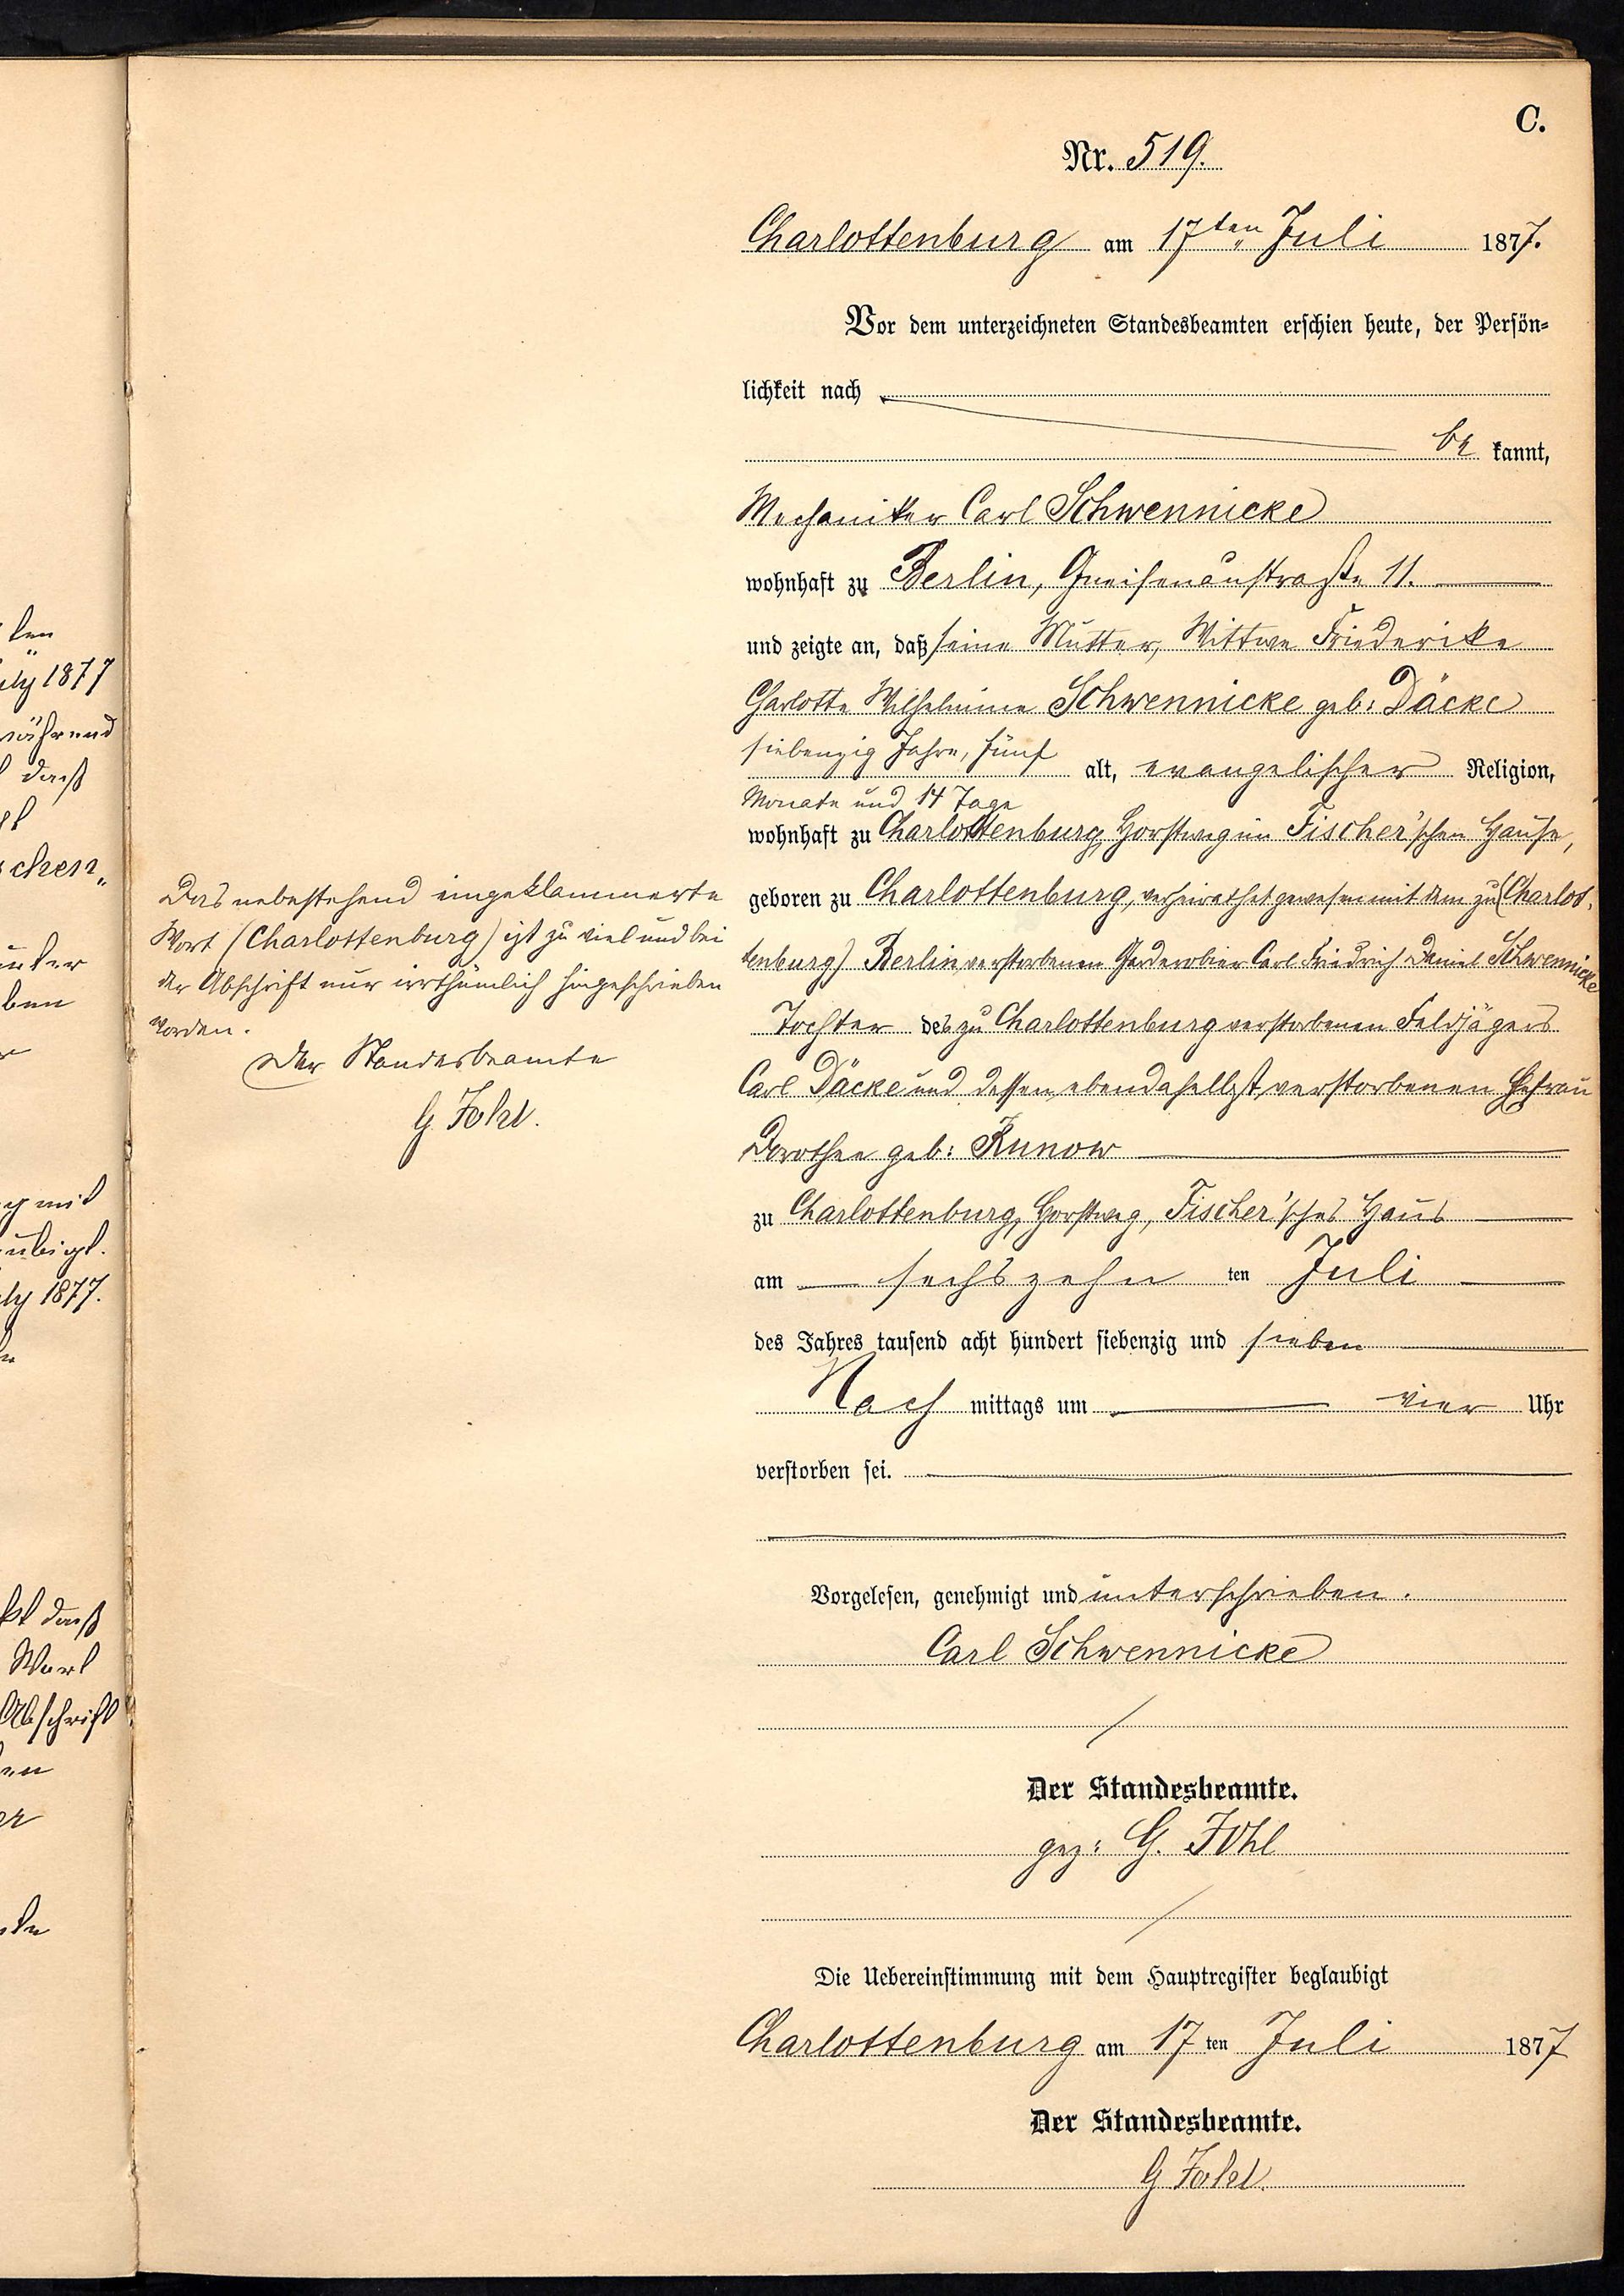 len
uly 1877
während
daß
chen„
ben
g mit
ubigt.
uly 1877.
ist daß
Wort
Abschrift
C.
Nr. 519.
Charlottenburg am 17ten Juli 1877.
Vor dem unterzeichneten Standesbeamten erschien heute, der Persön-
lichkeit nach
be kannt,
Mechaniker Carl Schwennicke
wohnhaft zu Berlin, Gneisenaustraße 11.
und zeigte an, daß seine Mutter, Wittwe Friederike
Charlotte Wilhelmine Schwennicke geb: Däcke
siebenzig Jahre, fünf alt, evangelischer Religion,
Monate und 14 Tage
wohnhaft zu Charlottenburg, Horstweg im Fischer'schen Hause,
geboren zu Charlottenburg, verheirathet gewesen mit dem zu (Charlot-
tenburg) Berlin verstorbenen Garderobier Carl Friedrich Daniel Schwennicke
Tochter des zu Charlottenburg verstorbenen Feldjägers
Carl Däcke und dessen ebendaselbst verstorbenen Ehefrau
Dorothee geb: Kunow
zu Charlottenburg, Horstweg, Fischer'sches Haus
am sechszehn ten Juli
des Jahres tausend acht hundert siebenzig und sieben
Nach mittags um vier Uhr
verstorben sei.
Vorgelesen, genehmigt und unterschrieben.
Carl Schwennicke
Der Standesbeamte.
gez: G. Fohl
Die Uebereinstimmung mit dem Hauptregister beglaubigt
Charlottenburg am 17 ten Juli 1877
Der Standesbeamte.
G Fohl.
Das nebestehend eingeklammerte
Wort (Charlottenburg) ist zu viel und bei
der Abschrift nur irrthümlich hingeschrieben
worden.
Der Standesbeamte
G. Fohl.